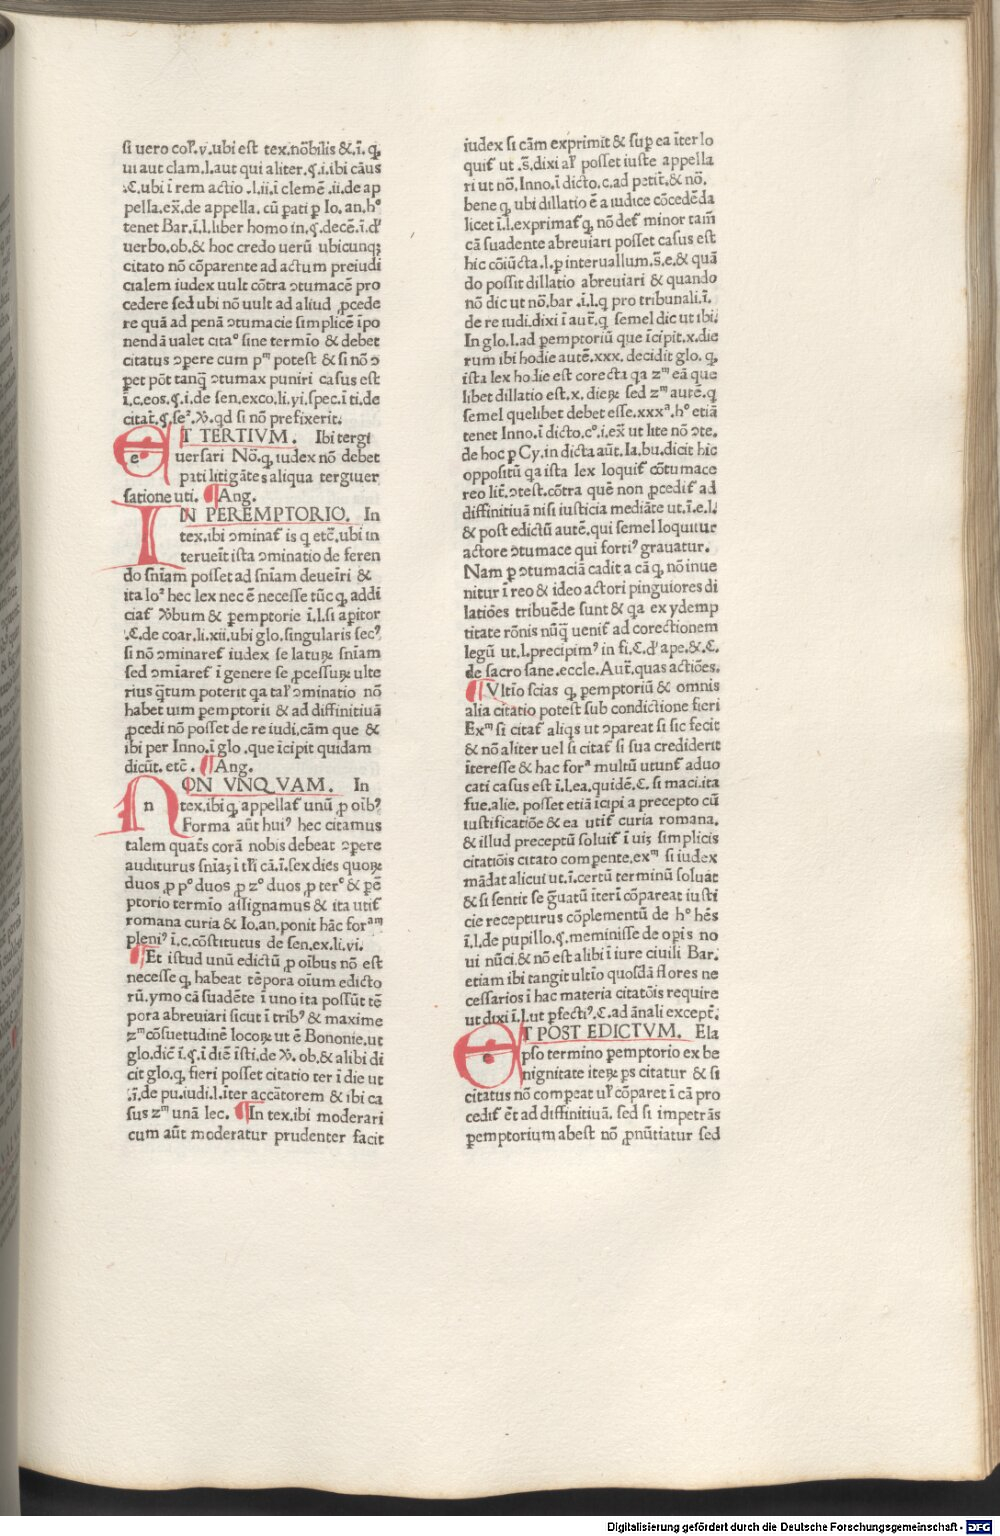 si uero cor̃.v.ubi est tex.nõbilis &.ĩ.q̃.
ui aut clam.l.aut qui aliter.§.i.ibi cãus
.C.ubi ĩ rem actio .l.ii.ĩ clemẽ .ii.de ap
pella.ex̃.de appella. cũ ꝑati ꝑ Io. an.hº
tenet Bar.ĩ.l.liber homo in.§.decẽ.ĩ.dͬ
uerbo.ob.& hoc credo uerũ ubicunqꝫ
citato nõ cõparente ad actum preiudi
cialem iudex uult cõtra ↄtumacẽ pro
cedere sed ubi nõ uult ad aliud ꝓcede
re quã ad penã ↄtumacie simplicẽ ĩpo
nendã ualet citaº sine termĩo & debet
citatus ↄpere cum pᵐ potest & si nõ ↄ
pet põt tanq̃ ↄtumax puniri casus est
ĩ.c.eos.§.i.de sen.exco.li.vi.spec.ĩ ti.de
citat̃.§.seᵃ.℣.qd si nõ prefixerit.
ET TERTIVM. Ibi tergi
uersari Nõ.q̃ iudex nõ debet
pati litigãtes aliqua tergiuer
satione uti. ¶Ang.
IN PEREMPTORIO. In
tex.ibi ↄminat̃ is q etc̃.ubi in
terueĩt ista ↄminatio de feren
do sñiam posset ad sñiam deueĩri &
ita loᵃ hec lex nec ẽ necesse tũc q̃ addi
ciat̃ ℣bum & ꝑemptorie ĩ.l.si apitor
.C.de coar.li.xii.ubi glo.singularis sec⁹
si nõ ↄminaret̃ iudex se laturꝫ sñiam
sed ↄmĩaret̃ ĩ genere se ꝓcessurꝫ ulte
rius q̃tum poterit qa tal̃ ↄminatio nõ
habet uim ꝑemptorii & ad diffinitiuã
ꝓcedi nõ posset de re iudi.cãm que &
ibi per Inno.ĩ glo .que ĩcipit quidam
dicũt. etc̃ . ¶Ang.
NON VNQVAM. In
tex.ibi q̃ appellat̃ unũ ꝓ oĩb⁹
Forma aũt hui⁹ hec citamus
talem quat̃s corã nobis debeat ↄpere
auditurus sñiaꝫ ĩ tl̃i cã.ĩ.sex dies quoꝝ
duos ꝓ pº duos ꝓ zº duos ꝓ terᶜ & ꝑẽ
ptorio termĩo assignamus & ita utit̃
romana curia & Io.an.ponit hãc forᵃᵐ
pleni⁹ ĩ.c.cõstitutus de sen.ex.li.vi.
¶Et istud unũ edictũ ꝓ oĩbus nõ est
necesse q̃ habeat tẽpora oĩum edicto
rũ.ymo cã suadẽte ĩ uno ita possũt tẽ
pora abreuiari sicut ĩ trib⁹ & maxime
zᵐ cõsuetudinẽ locoꝝ ut ẽ Bononie.ut
glo.diẽ ĩ.§.ĩ diẽ ĩsti.de ℣. ob.& alibi di
cit glo.q̃ fieri posset citatio ter ĩ die ut
.ĩ.de pu.iudi.l.ĩter accãtorem & ibi ca
sus zᵐ unã lec. ¶In tex.ibi moderari
cum aũt moderatur prudenter facit
iudex si cãm exprimit & suꝑ ea ĩter lo
quit̃ ut .s̃.dixi al̃ posset iuste appella
ri ut nõ. Inno.ĩ dicto.c.ad petit̃.& nõ.
bene q̃ ubi dillatio ẽ a iudice cõcedẽda
licet ĩ.l.exprimat̃ q̃ nõ det̃ minor tam̃
cã suadente abreuiari posset casus est
hic cõiũcta.l.ꝑ interuallum.s̃.e.& quã
do possit dillatio abreuiari & quando
nõ dic ut nõ.bar .ĩ.l.q pro tribunali.ĩ.
de re iudi.dixi ĩ aut̃.q semel dic ut ibi.
In glo.l.ad ꝑemptoriũ que ĩcipit.x.die
rum ibi hodie autẽ.xxx. decidit glo. q̃
ista lex hodie est corecta qa zᵐ eã que
libet dillatio est.x. dieꝝ sed zᵐ autẽ.q
semel quelibet debet esse.xxxᵃ.hº etiã
tenet Inno.ĩ dicto.cº.i.ex̃ ut lite nõ ↄte.
de hoc ꝑ Cy.in dicta aũt.Ia.bu.dicit hic
oppositũ qa ista lex loquit̃ cõtumace
reo lit̃.ↄtest.cõtra quẽ non ꝓcedit̃ ad
diffinitiuã nisi iusticia mediãte ut.ĩ.e.l.
& post edictũ autẽ.qui semel loquitur
actore ↄtumace qui forti⁹ grauatur.
Nam ꝑ ↄtumaciã cadit a cã q̃ nõ inue
nitur ĩ reo & ideo actori pinguiores di
latiões tribuẽde sunt & qa ex ydemp
titate rõnis nũq̃ uenit̃ ad corectionem
legũ ut.l.precipim⁹ in fi.C.dͬ ape.&.C.
de sacro sane.eccle.Aut̃.quas actiões.
¶Vltĩo scias q̃ ꝑemptoriũ & omnis
alia citatio potest sub condictione fieri
Exᵐ si citat̃ aliqs ut ↄpareat si sic fecit
& nõ aliter uel si citat̃ si sua crediderit
ĩteresse & hac forᵃ multũ utunt̃ aduo
cati casus est ĩ.l.ea.quidẽ.C. si maci.ita
fue.alie. posset etiã ĩcipi a precepto cũ
iustificatiõe & ea utit̃ curia romana.
& illud preceptũ soluit̃ ĩ uiꝫ simplicis
citatiõis citato compente.exᵐ si iudex
mãdat alicui ut.ĩ.certũ terminũ soluat
& si sentit se g̃uatũ iterĩ cõpareat iusti
cie recepturus cõplementũ de hº hẽs
ĩ.l.de pupillo.§.meminisse de opis no
ui nũci.& nõ est alibi ĩ iure ciuili Bar.
etiam ibi tangit ultĩo quosdã flores ne
cessarios ĩ hac materia citatõis require
ut dixi ĩ.l.ut ꝑfecti⁹.C.ad ãnali except̃.
ET POST EDICTVM. Ela
pso termino ꝑemptorio ex be
nignitate iteꝝ ps citatur & si
citatus nõ compeat ul̃ cõparet ĩ cã pro
cedit̃ ẽt ad diffinitiuã. sed si impetrãs
ꝑemptorium abest nõ ꝓnũtiatur sed
Digitalisierung gefördert durch die Deutsche Forschungsgemeinschaft - DFG